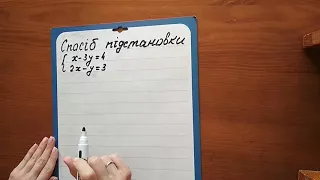 Спосіб підстановки
{ x-3y=4
{ 2x-y=3